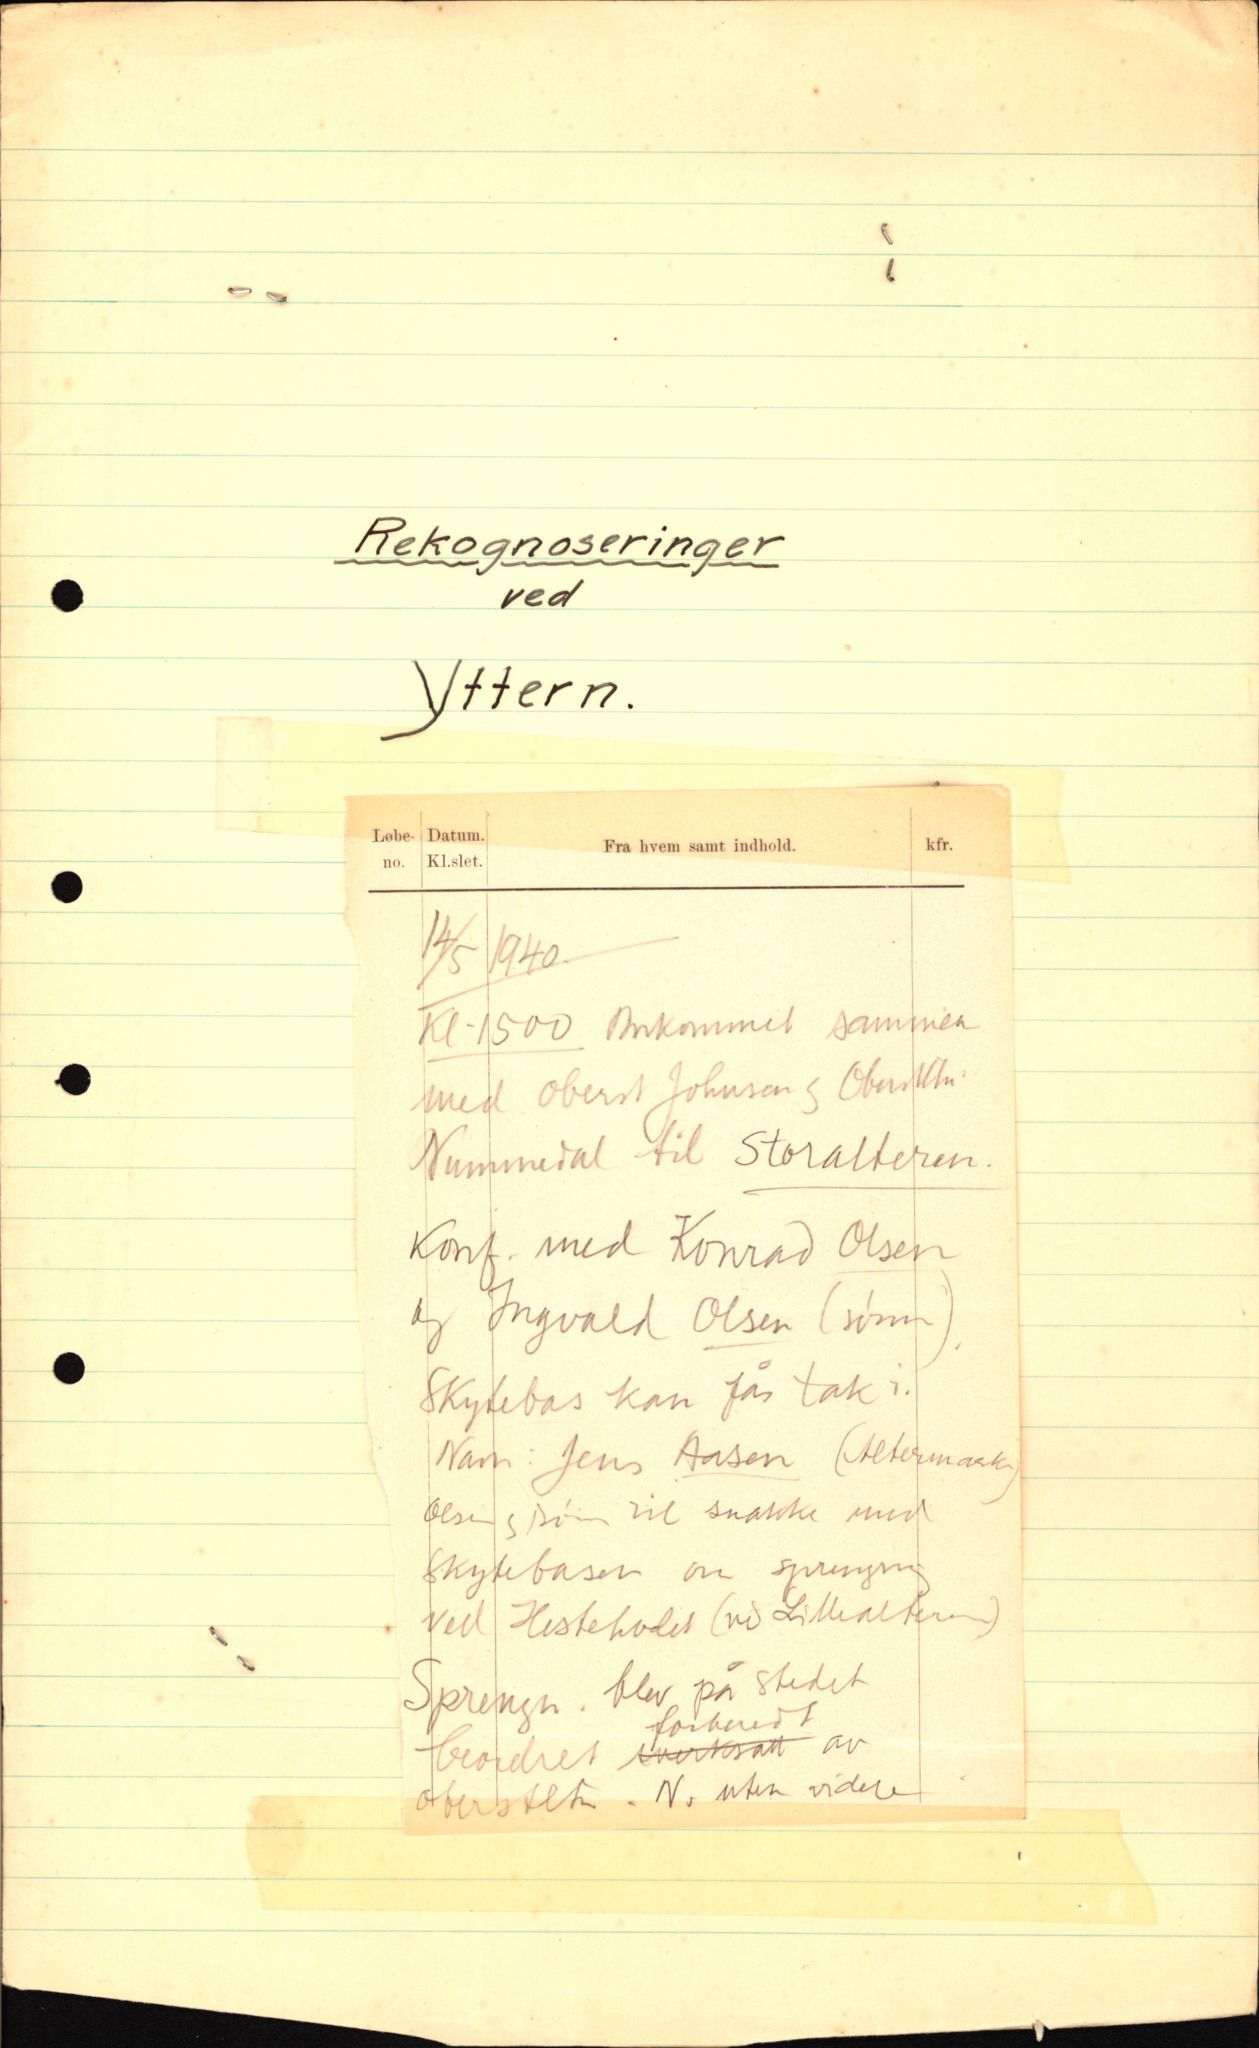 Rekognoseringer
ved
Yttern.
Løbe- Datum. Fra hvem samt indhold. kfr.
no. Kl.slet.
14/5 1940.
Kl. 1500 Ankommet sammen
med oberst Johnsen og Oberstltn.
Nummedal til Storalteren.
Konf. med Konrad Olsen
og Ingvald Olsen (sønn).
Skytebas kan fås tak i.
Navn: Jens Aasen (Altermark)
Olsen og sønn vil snakke med
skytebasen om sprengning
ved Hestehodet (ved Lillealteren)
Sprengn. blev på stedet
forberedt
beordret iverksatt av
oberstltn. N. uten videre